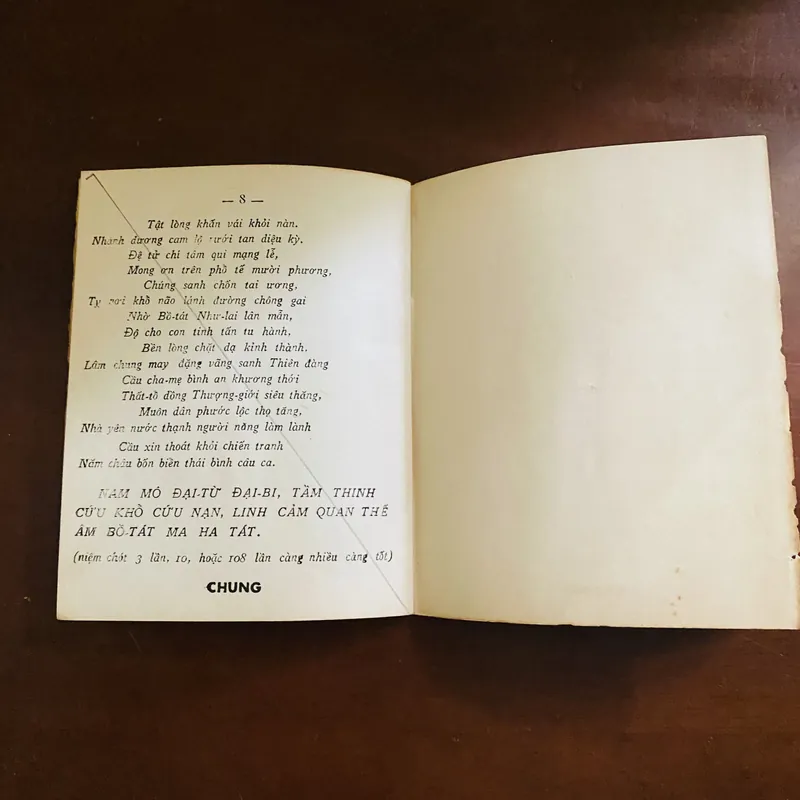 — 8 —
Tật lòng khấn vái khỏi nàn.
Nhành dương cam lộ rưới tan diệu kỳ.
Đệ tử chí tâm qui mạng lễ,
Mong ơn trên phổ tế mười phương,
Chúng sanh chốn tai ương,
Tỵ nơi khổ não lánh đường chông gai
Nhờ Bồ-tát Như-lai lân mẫn,
Độ cho con tinh tấn tu hành,
Bền lòng chặt dạ kỉnh thành.
Lâm chung may đặng vãng sanh Thiên đàng
Cầu cha-mẹ bình an khương thới
Thất-tổ đồng Thượng-giới siêu thăng,
Muôn dân phước lộc thọ tăng,
Nhà yên nước thạnh người năng làm lành
Cầu xin thoát khỏi chiến tranh
Năm châu bốn biển thái bình âu ca.
NAM MÔ ĐẠI-TỪ ĐẠI-BI, TẦM THINH
CỨU KHỔ CỨU NẠN, LINH CẢM QUAN THẾ
ÂM BỒ-TÁT MA HA TÁT.
(niệm chót 3 lần, 10, hoặc 108 lần càng nhiều càng tốt)
CHUNG